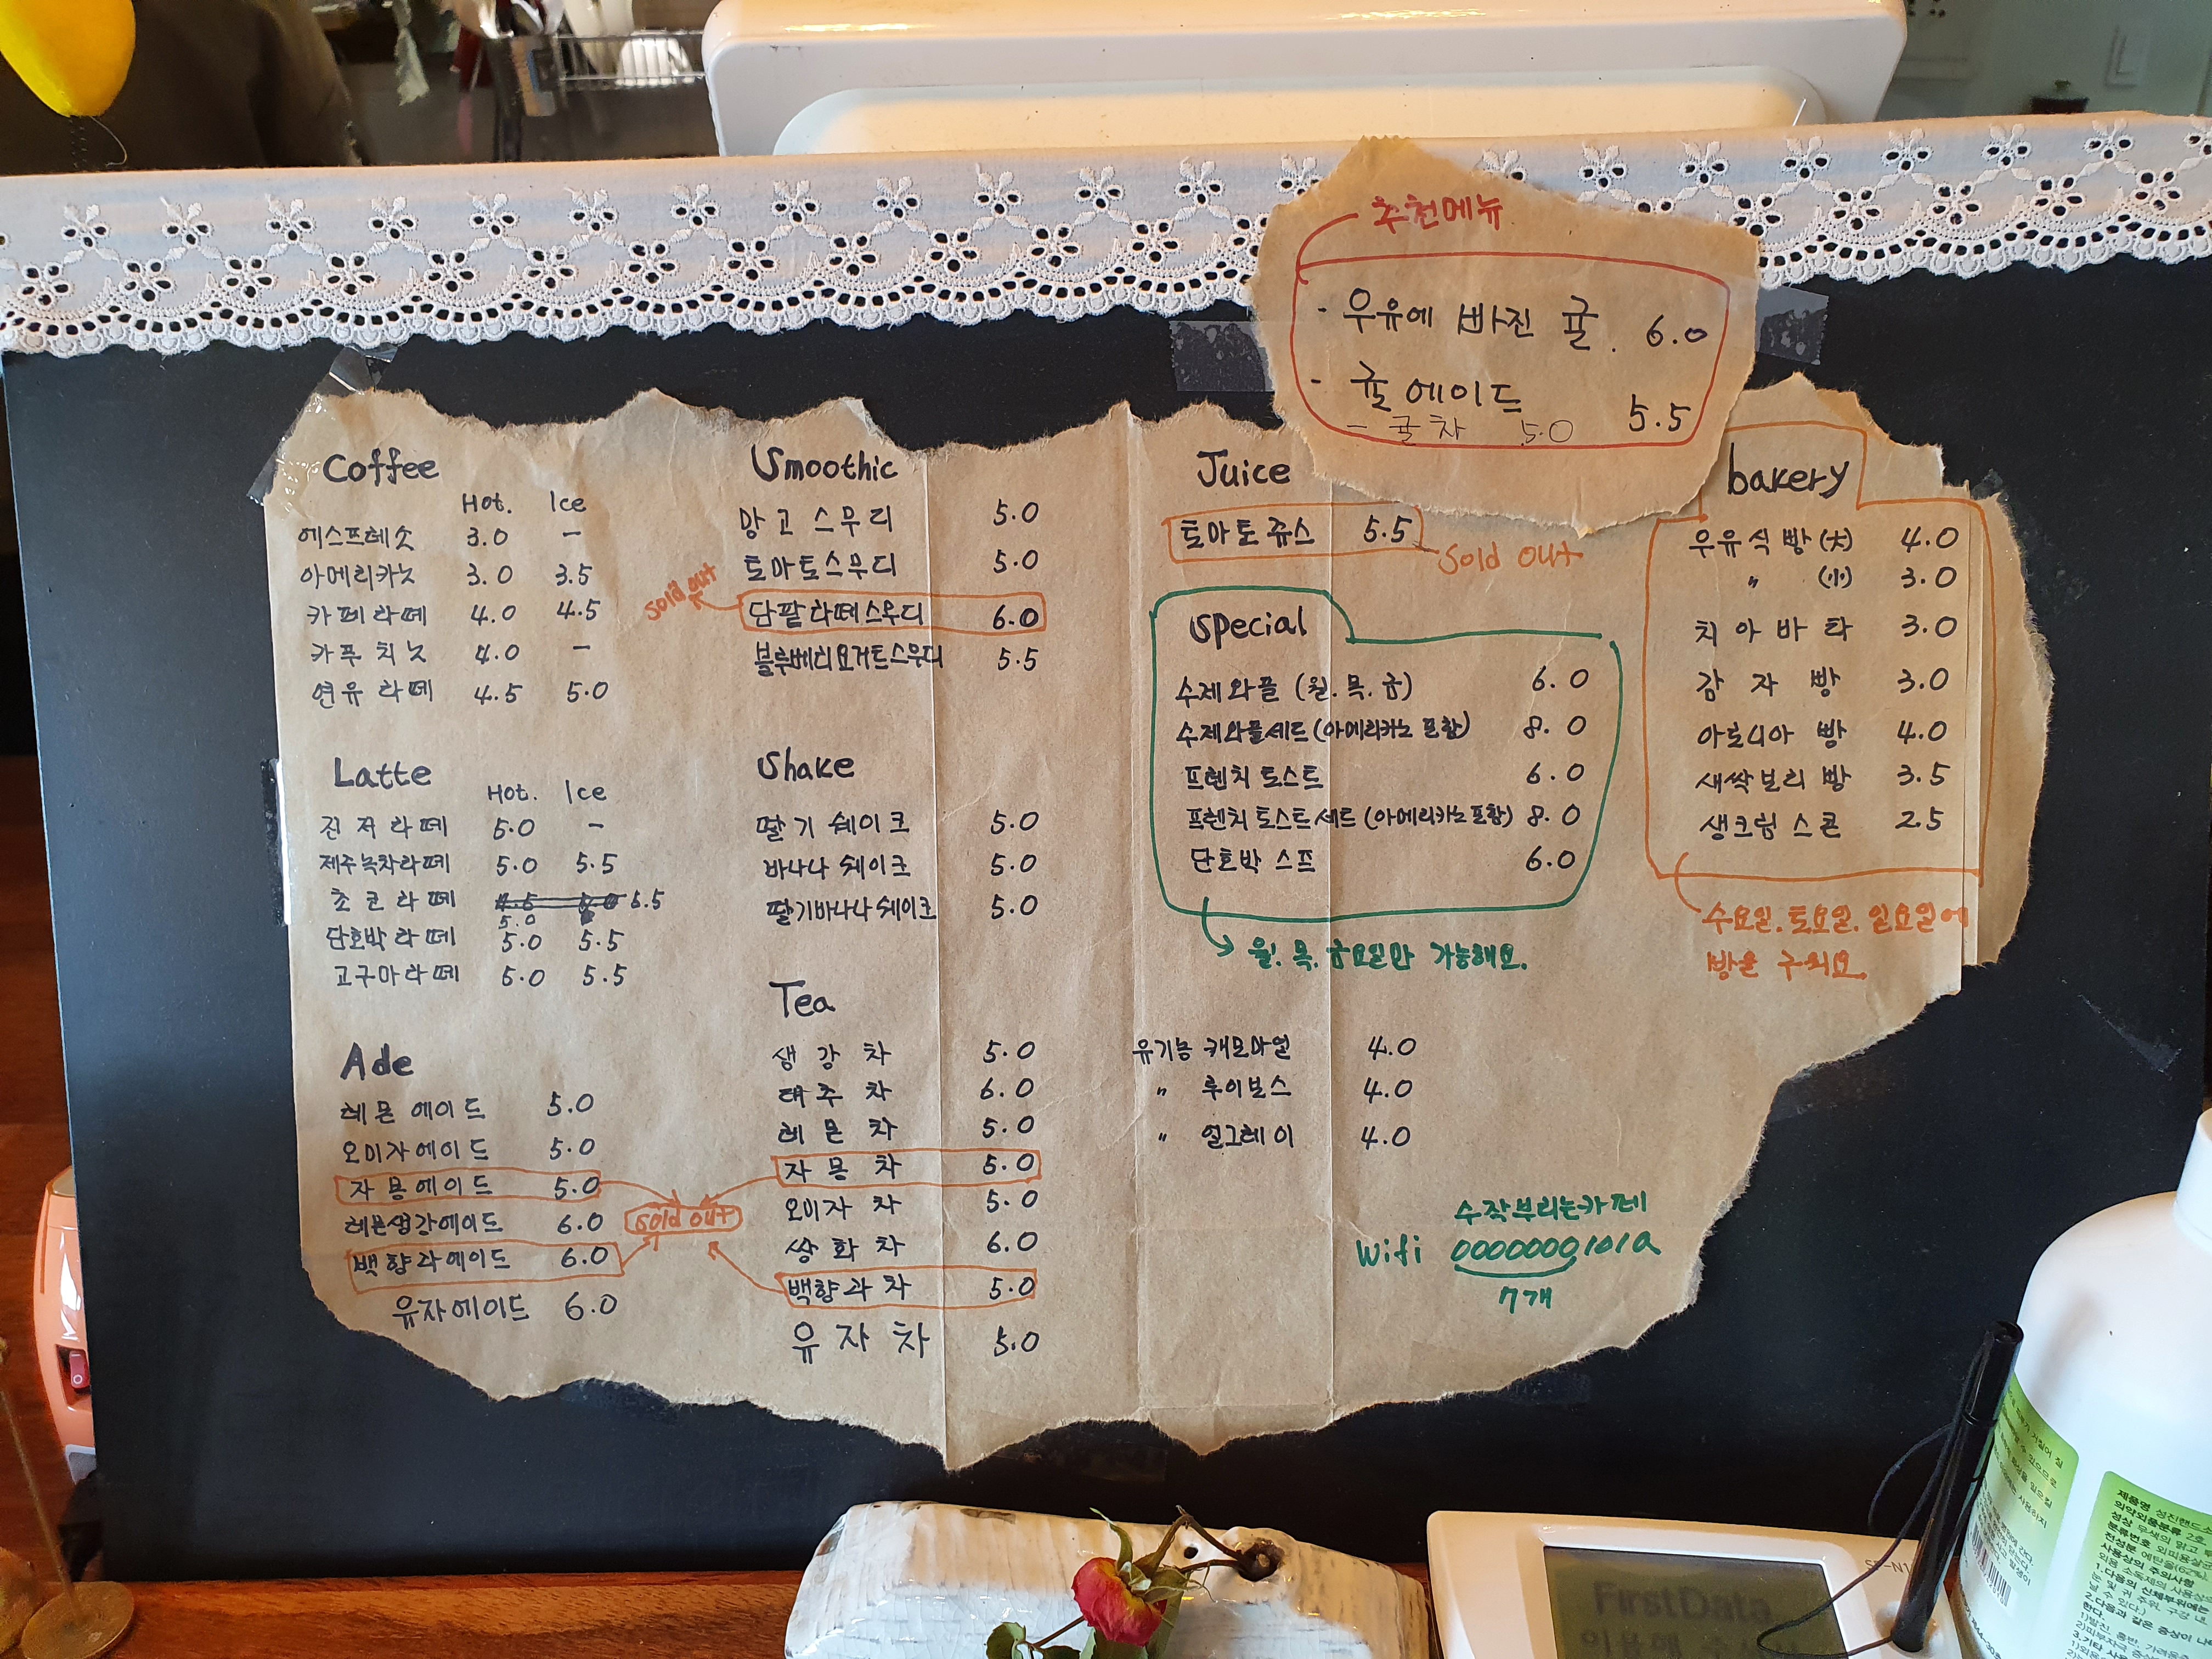 추천메뉴
· 우유에 빠진 귤. 6.0
- 귤에이드 5.5
- 귤차 5.0
Coffee
Hot. Ice
에스프레소 3.0 -
아메리카노 3.0 3.5
카페라떼 4.0 4.5
카푸치노 4.0 -
연유라떼 4.5 5.0
Latte
Hot. Ice
진저라떼 5.0 -
제주녹차라떼 5.0 5.5
초코라떼 4.5 5.0 5.5
5.0
단호박라떼 5.0 5.5
고구마라떼 5.0 5.5
Ade
레몬에이드 5.0
오미자에이드 5.0
자몽에이드 5.0
레몬생강에이드 6.0
백향과에이드 6.0
유자에이드 6.0
sold out
Smoothie
망고스무디 5.0
토마토스무디 5.0
단팥라떼스무디 6.0
sold out
블루베리요거트스무디 5.5
Shake
딸기쉐이크 5.0
바나나쉐이크 5.0
딸기바나나쉐이크 5.0
Tea
생강차 5.0
대추차 6.0
레몬차 5.0
자몽차 5.0
오미자차 5.0
쌍화차 6.0
백향과차 5.0
유자차 5.0
유기농 캐모마일 4.0
〃 루이보스 4.0
〃 얼그레이 4.0
Juice
토마토쥬스 5.5
Sold out
Special
수제와플 (월.목.금) 6.0
수제와플세트 (아메리카노 포함) 8.0
프렌치토스트 6.0
프렌치토스트세트 (아메리카노포함) 8.0
단호박 스프 6.0
월.목.금요일만 가능해요.
bakery
우유식빵 (大) 4.0
〃 (小) 3.0
치아바타 3.0
감자빵 3.0
아로니아빵 4.0
새싹보리빵 3.5
생크림스콘 2.5
수요일.토요일.일요일에
빵을 구워요.
수작부리는카페
Wifi 0000000101a
7개
FirstData
제품명